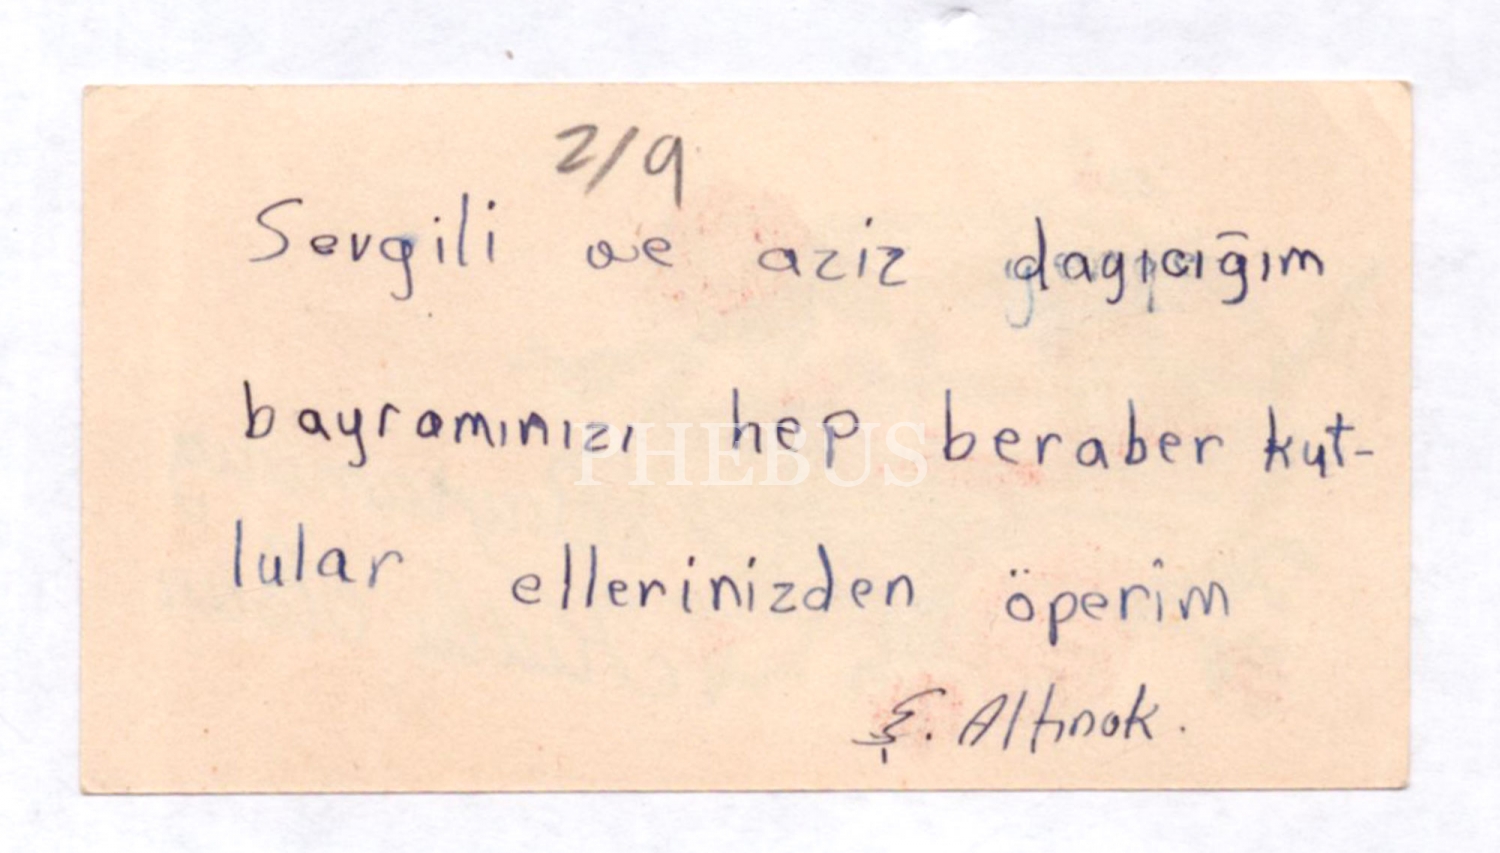 2/9
Sevgili ve aziz dayıcığım
bayramınızı hep beraber kut-
PHEBUS
lular ellerinizden öperim
Ş. Altınok.